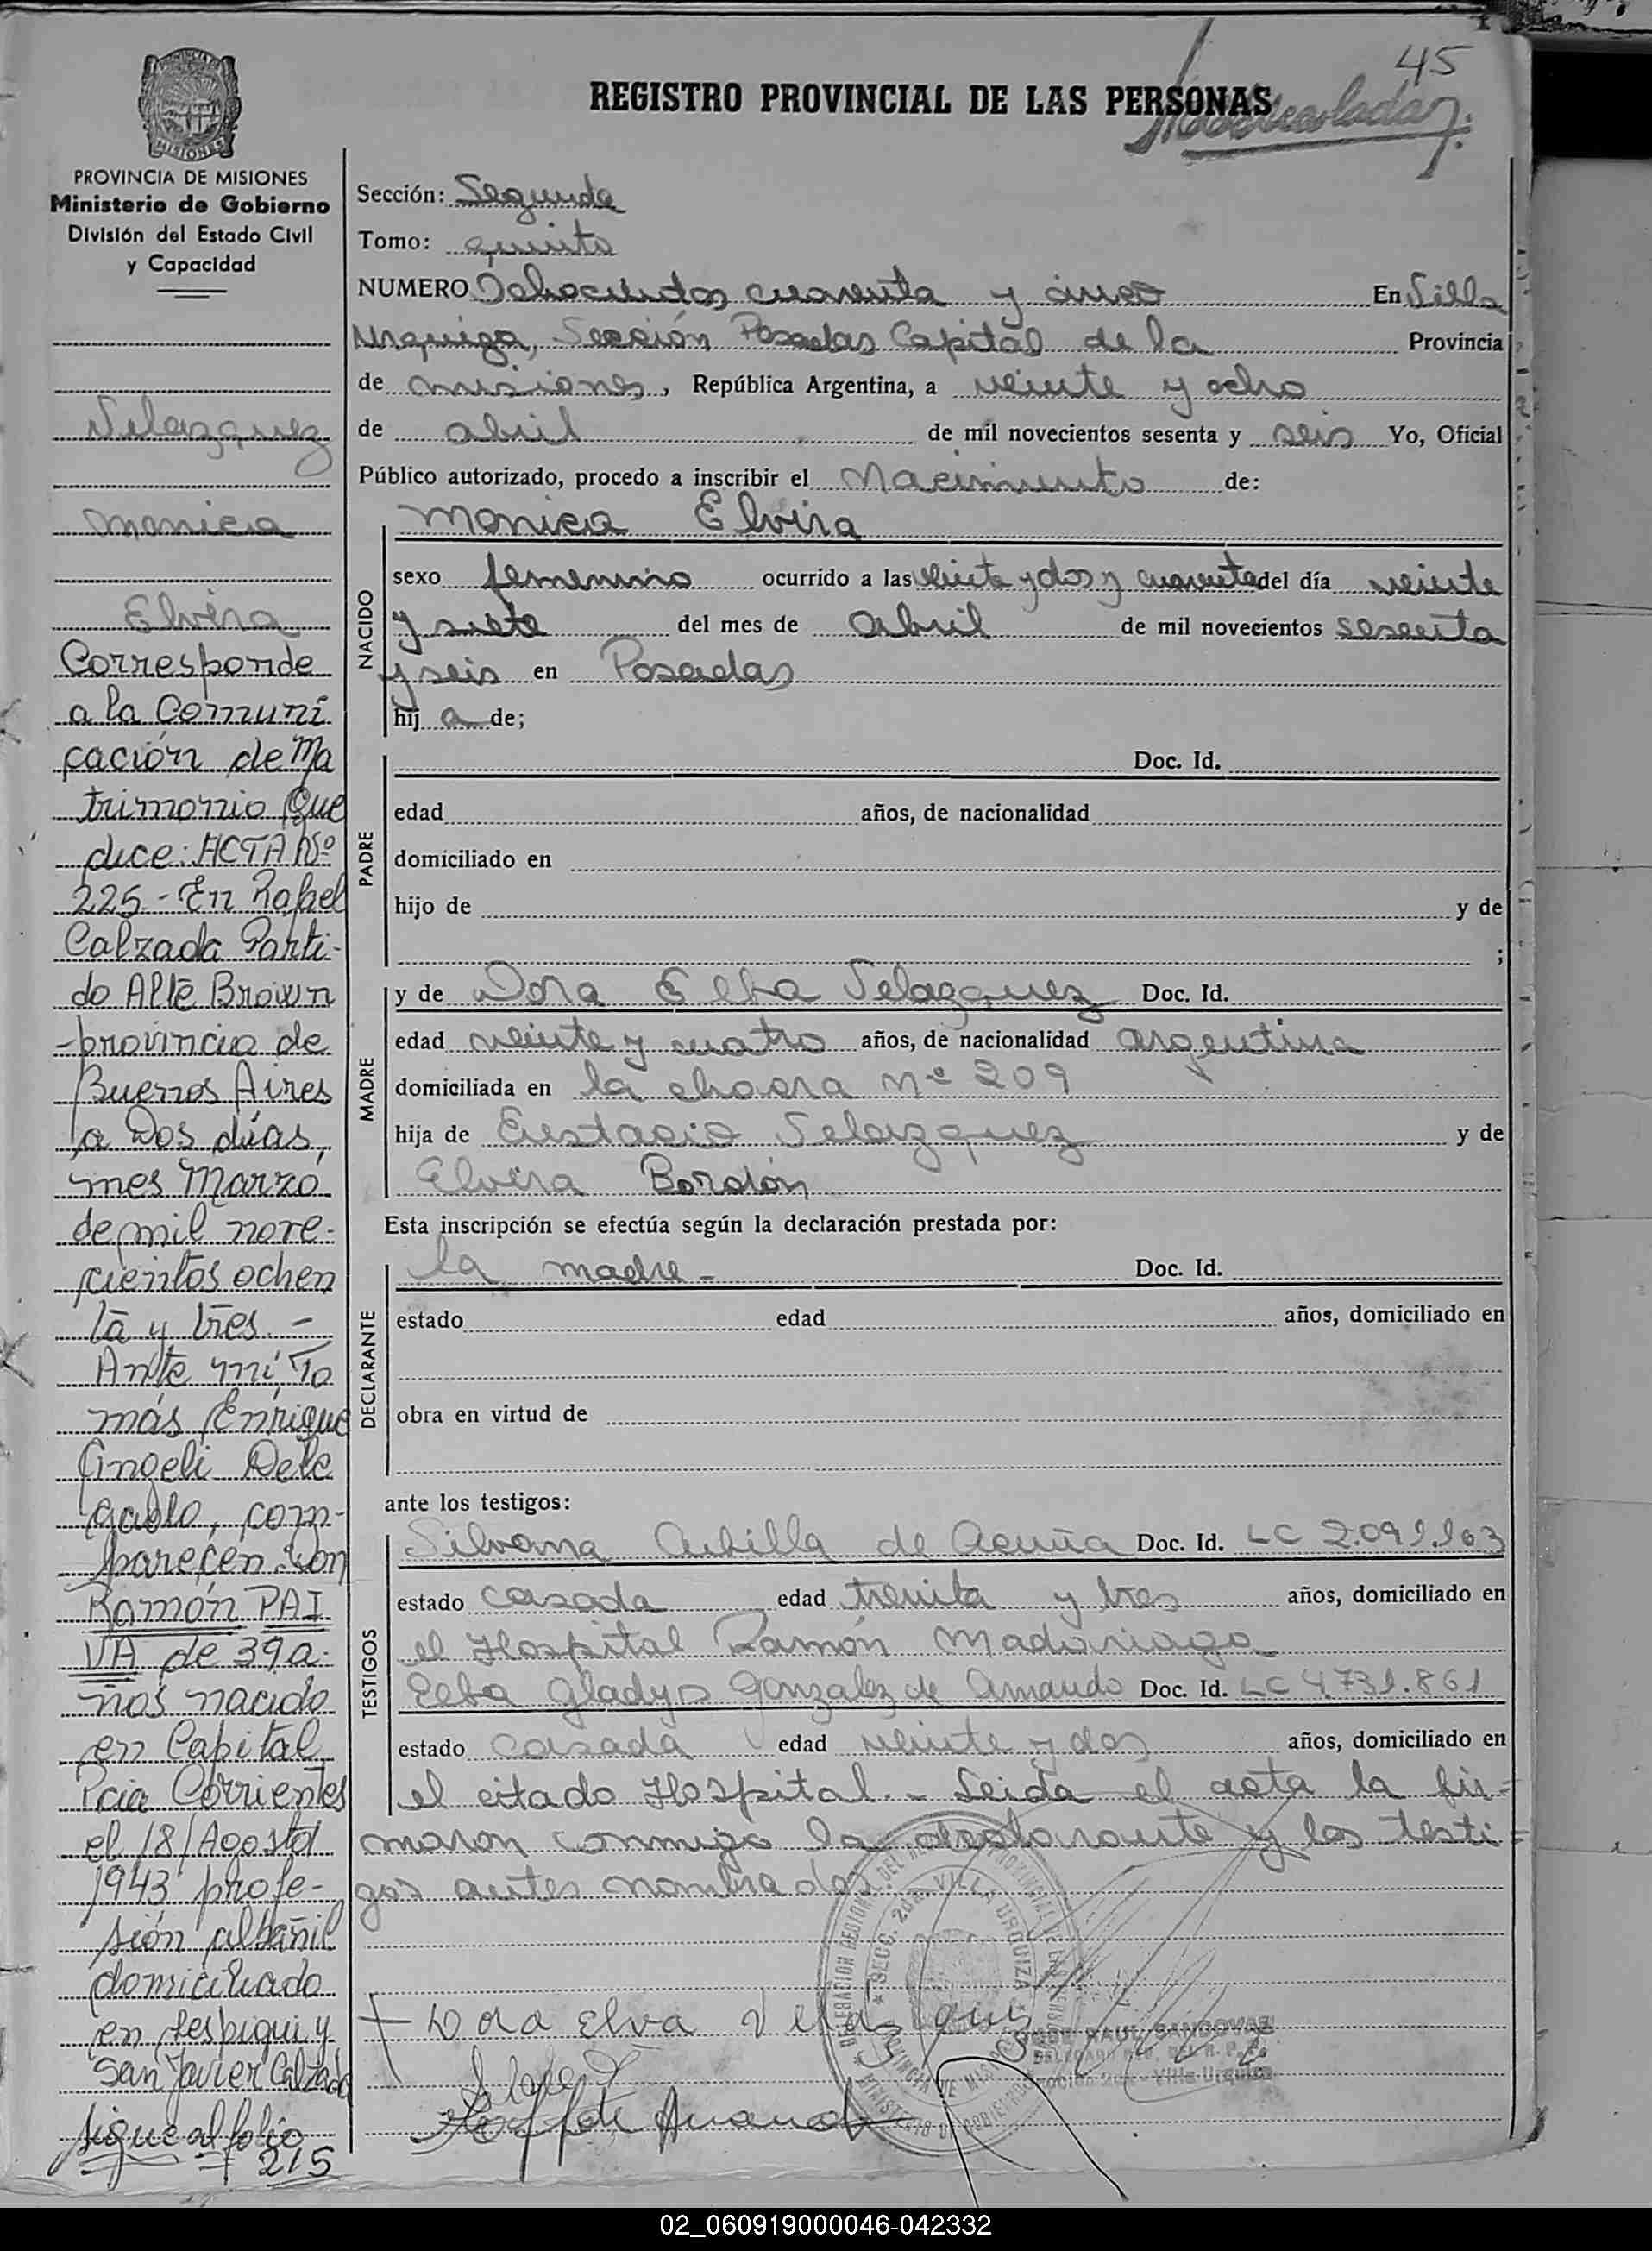 45
REGISTRO PROVINCIAL DE LAS PERSONAS
MISIONES
PROVINCIA DE MISIONES
Ministerio de Gobierno
División del Estado Civil
y Capacidad
Velazquez
Monica
Elvira
Corresponde
a la Comuni
cación de Ma
trimonio que
dice: ACTA Nº
225 - En Rafael
Calzada Parti-
do Alte Brown
provincia de
Buenos Aires
a Dos días,
mes Marzo
de mil nove-
cientos ochen
ta y tres. -
Ante mi, To
más Enrique
Angeli Dele
gado, com-
parecen: Don
Ramón PAI
VA de 39 a-
ños nacido
en Capital
Pcia Corrientes
el 18/Agosto/
1943 profe-
sión albañil
domiciliado
en Jespiqui y
San Javier Calzada
sigue al folio
215
Sección: Segunda
Tomo: quinto
NUMERO Ochocientos cuarenta y cinco En Villa
Urquiza, Sección Posadas Capital de la Provincia
de misiones, República Argentina, a veinte y ocho
de abril de mil novecientos sesenta y seis Yo, Oficial
Público autorizado, procedo a inscribir el Nacimiento de:
Monica Elvira
NACIDO
sexo femenino ocurrido a las veinte y dos y cuarenta del día veinte
y siete del mes de abril de mil novecientos sesenta
y seis en Posadas
hij a de;
PADRE
Doc. Id.
edad años, de nacionalidad
domiciliado en
hijo de y de
;
MADRE
y de Dora Elba Velazquez Doc. Id.
edad veinte y cuatro años, de nacionalidad argentina
domiciliada en la chacra Nº 209
hija de Eustacio Velazquez y de
Elvira Bordón
Esta inscripción se efectúa según la declaración prestada por:
DECLARANTE
la madre - Doc. Id.
estado edad años, domiciliado en
obra en virtud de
ante los testigos:
TESTIGOS
Silvana de Acuña Doc. Id. LC 2.091.963
estado casada edad treinta y tres años, domiciliado en
el Hospital Ramón Madariaga
Elba Gladys Gonzalez de Amando Doc. Id. LC 4.731.861
estado casada edad veinte y dos años, domiciliado en
el citado Hospital. - Leida el acta la fir-
maron conmigo la declarante y los testi-
gos antes nombrados.
SECC. 2da. VILLA URQUIZA
+ Dora Elva Velasques
JOSE RAUL SANDOVAL
Sección 2da - Villa Urquiza
02_060919000046-042332